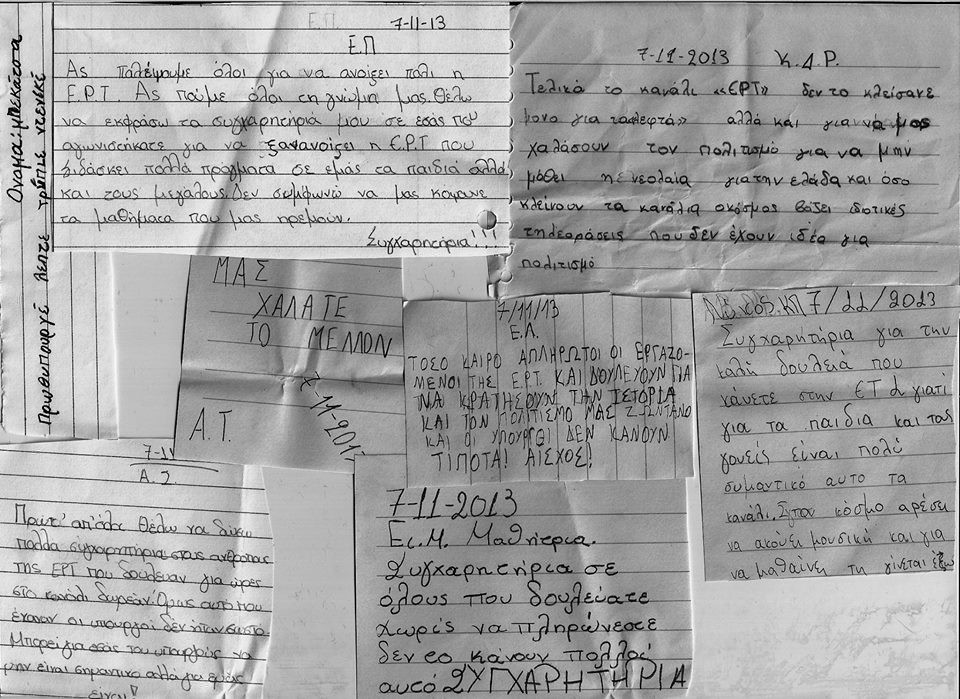 Ονομα: μπεκάτσα
Πρωθυπουργέ λέπτε τρύπιε ντενεκέ
Ε.Π. 7-11-13
Ε.Π
Ας παλέψουμε όλοι για να ανοίξει πάλι η
Ε.Ρ.Τ. Ας πούμε όλοι τη γνώμη μας. Θέλω
να εκφράσω τα συγχαρητήριά μου σε εσάς που
αγωνιστήκατε για να ξανανοίξει η Ε.Ρ.Τ που
διδάσκει πολλά πράγματα σε εμάς τα παιδιά αλλά
και τους μεγάλους. Δεν συμφωνώ να μας κόψουνε
τα μαθήματα που μας ηρεμούν.
Συγχαρητήρια!!
7-11-2013 Κ.Δ.Ρ.
Τελικά το κανάλι «ΕΡΤ» δεν το κλείσανε
μονο για τα λεφτά» αλλά και για να μας
χαλάσουν τον πολιτισμό για να μην
μάθει η νεολαία για την ελάδα και όσο
κλείνουν τα κανάλια ο κόσμος βάζει ιδιοτικές
τηλεοράσεις που δεν έχουν ιδέα για
πολιτισμό
ΜΑΣ
ΧΑΛΑΤΕ
ΤΟ ΜΕΛΛΟΝ
Α.Τ. 7-11-2013
7/11/13
Ε.Λ.
ΤΟΣΟ ΚΑΙΡΟ ΑΠΛΗΡΩΤΟΙ ΟΙ ΕΡΓΑΖΟ-
ΜΕΝΟΙ ΤΗΣ Ε.Ρ.Τ. ΚΑΙ ΔΟΥΛΕΥΟΥΝ ΓΙΑ
ΝΑ ΚΡΑΤΗΣΟΥΝ ΤΗΝ ΙΣΤΟΡΙΑ
ΚΑΙ ΤΟΝ ΠΟΛΙΤΙΣΜΟ ΜΑΣ ΖΩΝΤΑΝΟ
ΚΑΙ ΟΙ ΥΠΟΥΡΓΟΙ ΔΕΝ ΚΑΝΟΥΝ
ΤΙΠΟΤΑ! ΑΙΣΧΟΣ!
7/11/2013
Συγχαρητήρια για την
καλή δουλειά που
κάνετε στην ΕΤ 2 γιατί
για τα παιδια και τους
γονείς είναι πολύ
συμαντικό αυτο το
κανάλι. Στον κόσμο αρέσει
να ακούει μουσική και για
να μαθαίνει τη γίνεται έξω
7-11
Α.Σ.
Πρώτ' απ' όλα θέλω να δώσω
πολλα συγχαρητήρια στους ανθρώπους
της ΕΡΤ που δούλευαν για ώρες
στο κανάλι δωρεάν. Όμως αυτό που
έκαναν οι υπουργοί δεν ήταν σωστο
Μπορεί για εσάς του υπουργούς να
μην είναι σημαντικο αλλά για εμάς
είναι!
7-11-2013
Ει.Μ. Μαθήτρια.
Συγχαρητήρια σε
όλους που δουλεύατε
χωρίς να πληρώνεστε
δεν το κάνουν πολλοί
αυτό ΣΥΓΧΑΡΗΤΗΡΙΑ